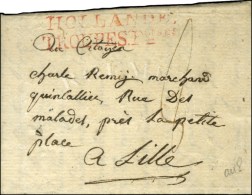 HOLLANDE
TROUPES Fses
Du Citoyen
charle Remij marchand
quincallier, Rue Des
malades, près La petite
place
A Lille